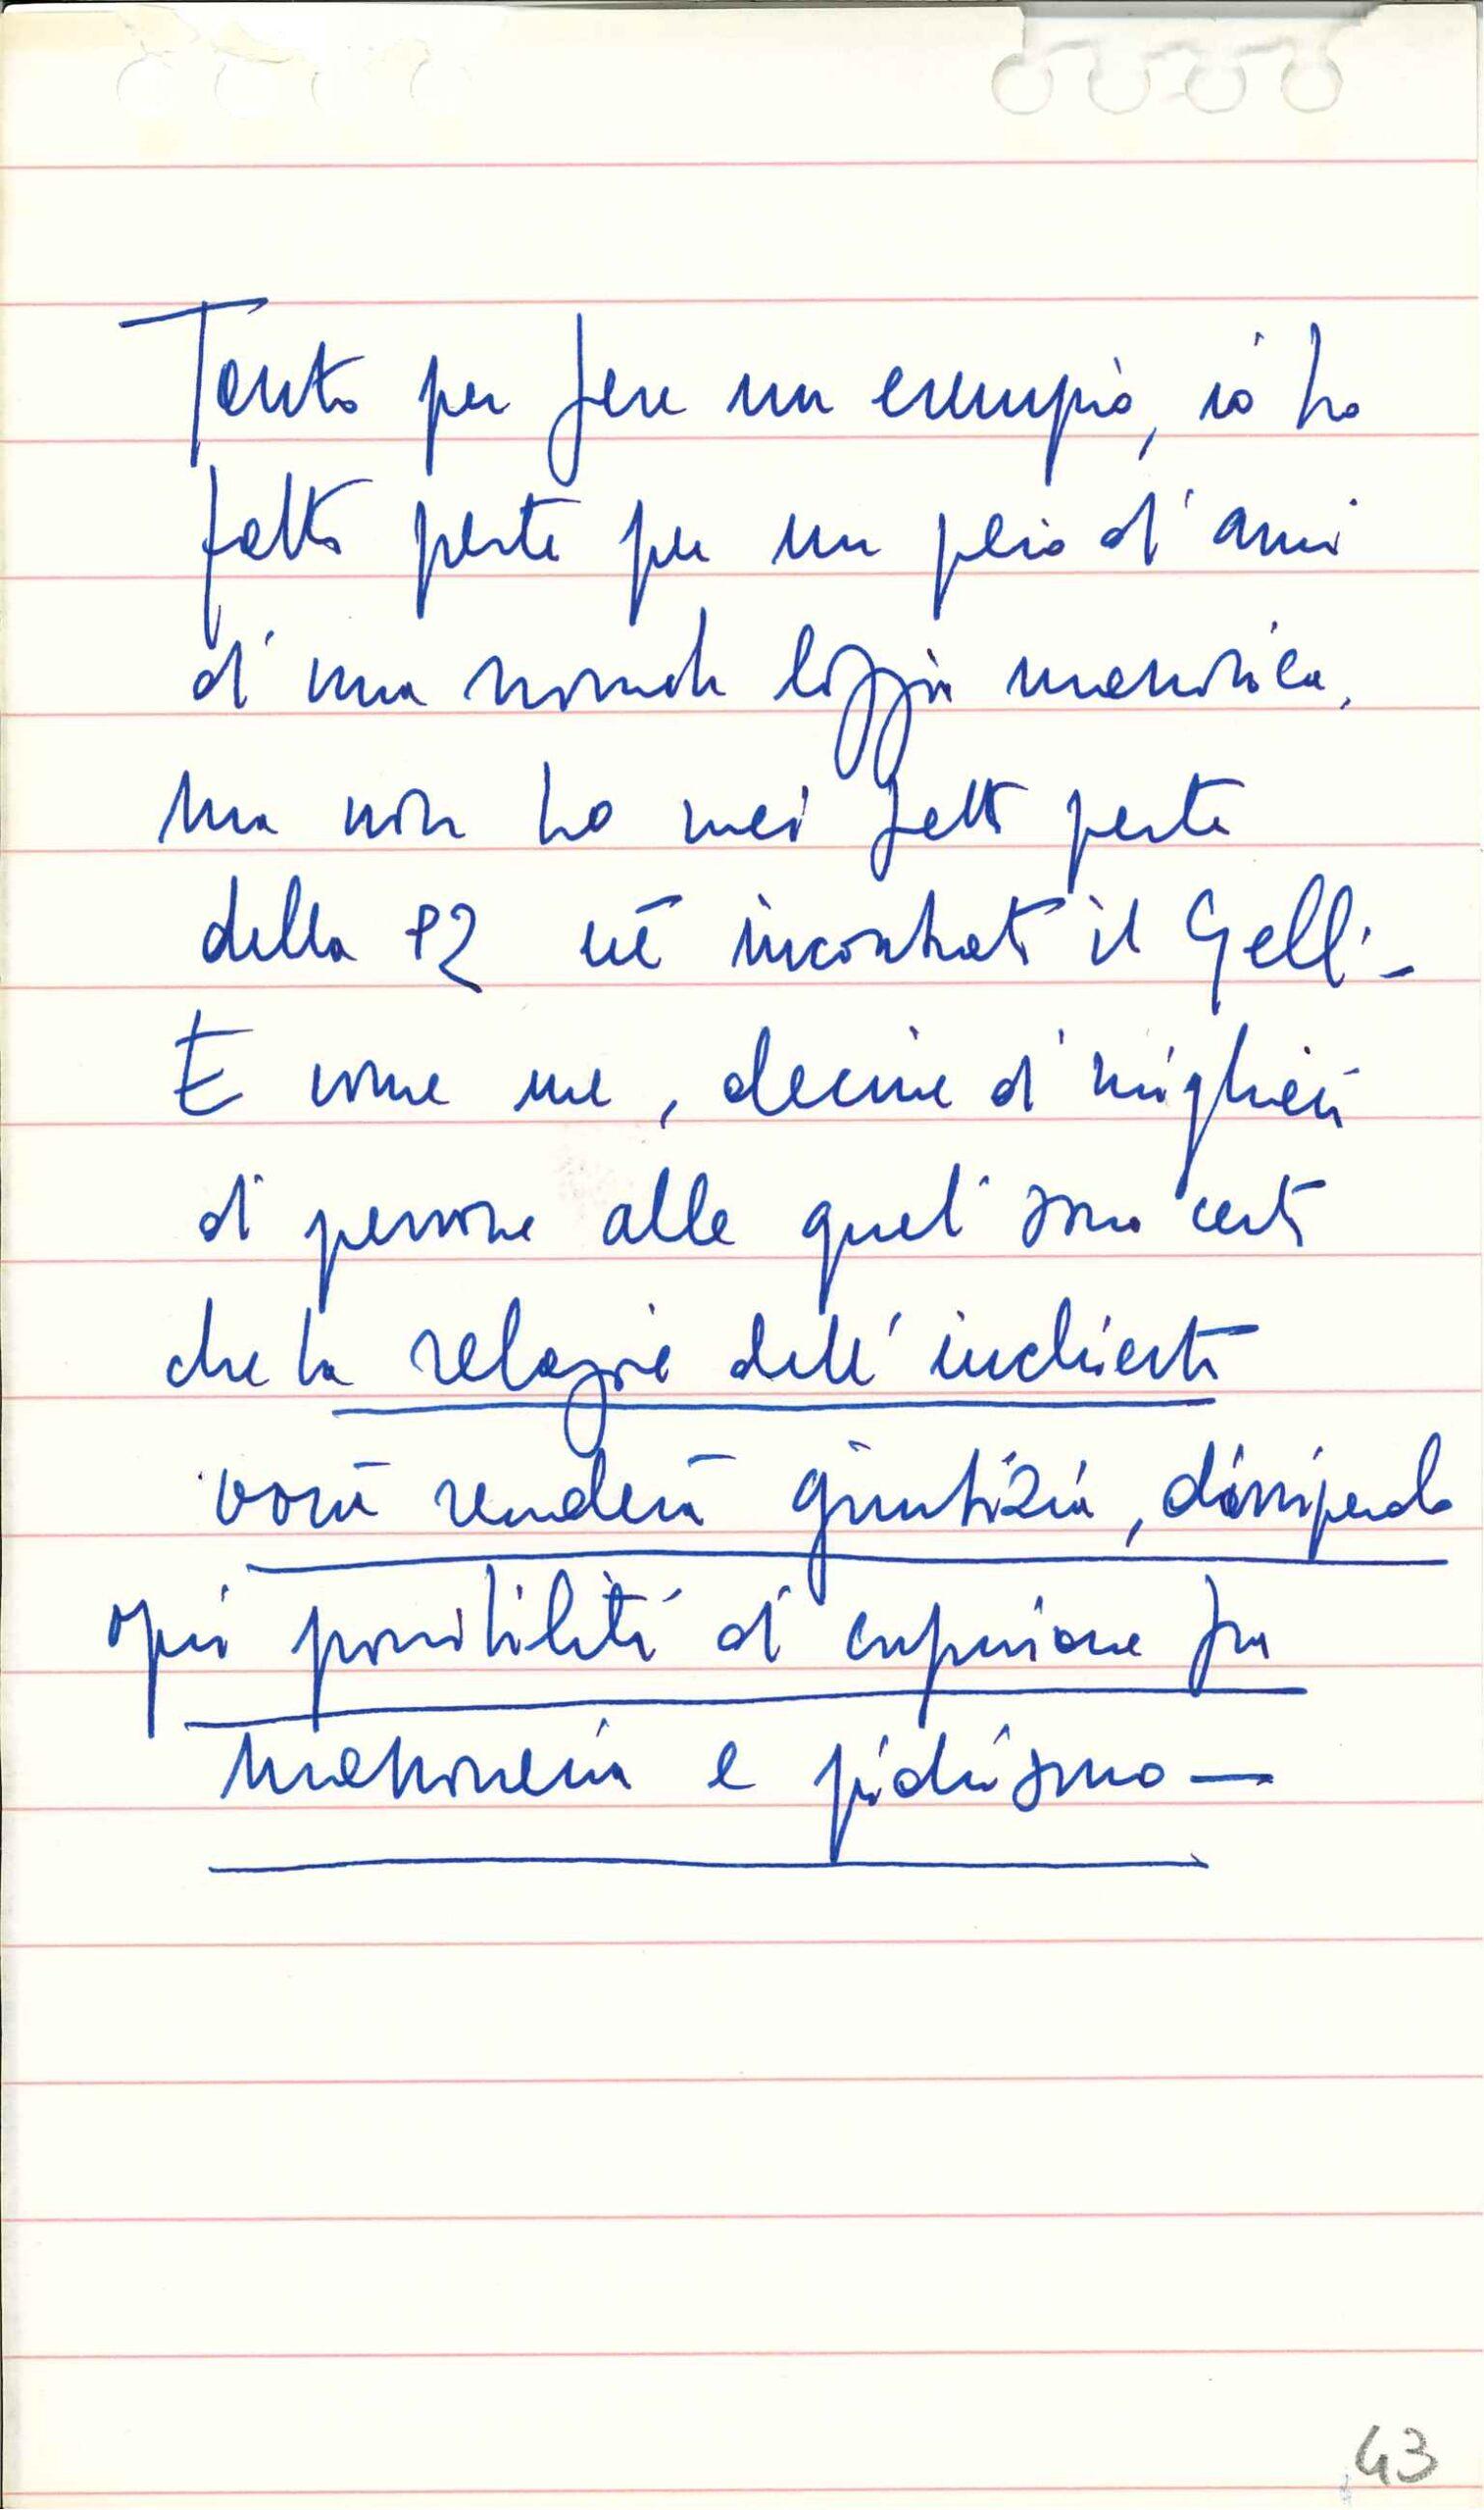 Tanto per fare un esempio, io ho
fatto parte per un paio d'anni
di una normale loggia massonica,
ma non ho mai fatto parte
della P2 né incontrato il Gelli -
E come me, decine di migliaia
di persone alle quali sono certo
che la relazione dell'inchiesta
vorrà rendere giustizia, dissipando
ogni possibilità di confusione fra
massoneria e piduismo -
43